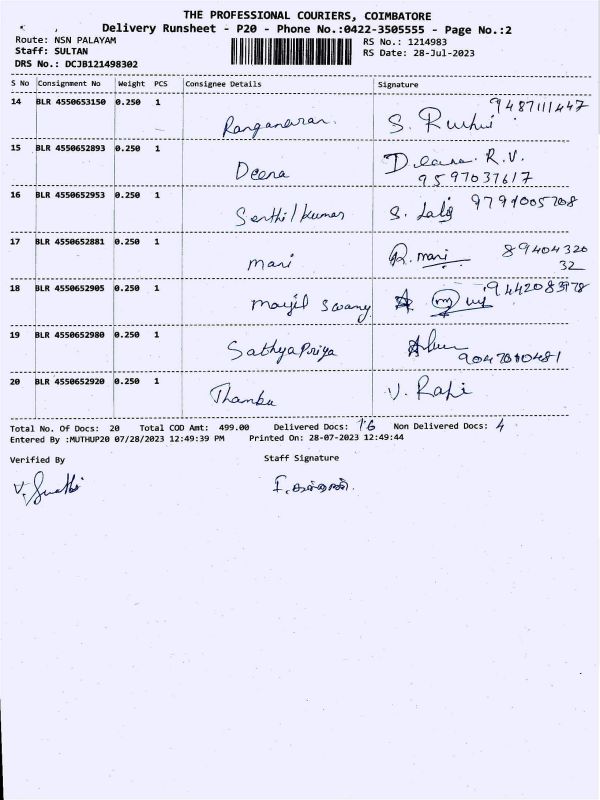 THE PROFESSIONAL COURIERS, COIMBATORE
Delivery Runsheet - P20 - Phone No.:0422-3505555 - Page No.:2
Route: NSN PALAYAM RS No.: 1214983
Staff: SULTAN RS Date: 28-Jul-2023
DRS No.: DCJB121498302
S No Consignment No Weight PCS Consignee Details Signature
14 BLR 4550653150 0.250 1 9487111447
S.
15 BLR 4550652893 0.250 1
Deena Deena R.V.
9597037617
16 BLR 4550652953 0.250 1
Senthilkumar S. 9791005708
17 BLR 4550652881 0.250 1
mani R. mani 89404320
32
18 BLR 4550652905 0.250 1
mayil swamy
19 BLR 4550652980 0.250 1
Sathya Priya
20 BLR 4550652920 0.250 1
V.
Total No. Of Docs: 20 Total COD Amt: 499.00 Delivered Docs: 16 Non Delivered Docs: 4
Entered By :MUTHUP20 07/28/2023 12:49:39 PM Printed On: 28-07-2023 12:49:44
Verified By Staff Signature